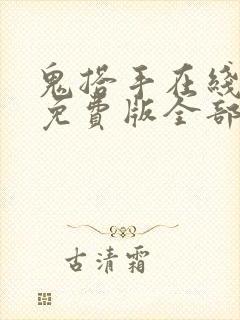 鬼搭手在线
免费版全部
古清霜